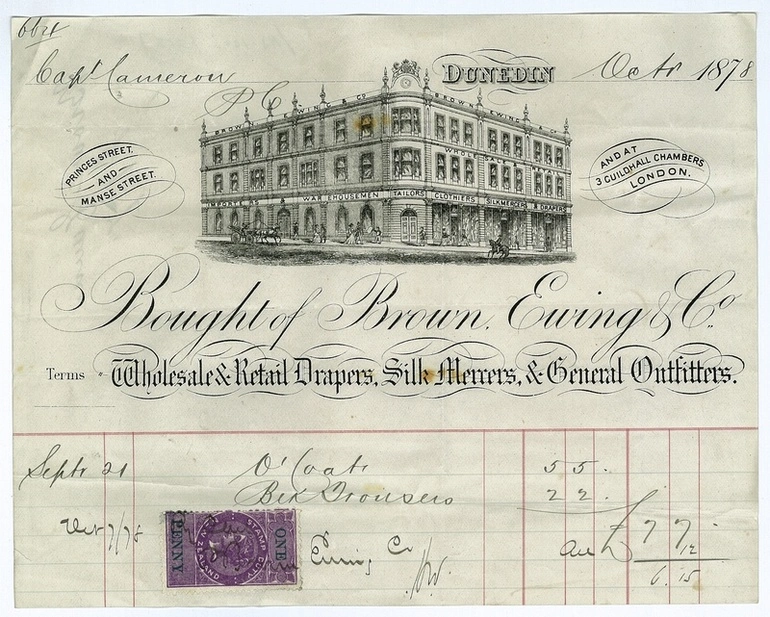 Capt Cameron
DUNEDIN
Octr 1878
BROWN EWING & CO
BROWN EWING
PRINCES STREET.
AND
MANSE STREET.
AND AT
3 GUILDHALL CHAMBERS
LONDON.
WHOLESALE
IMPORTERS WAREHOUSEMEN TAILORS CLOTHIERS SILKMERCERS & DRAPERS
Bought of Brown, Ewing & Co.
Terms Wholesale & Retail Drapers, Silk Mercers, & General Outfitters.
Septr 21 O'Coat 55.
Trousers 22.
Oct 7/78
ONE
PENNY
STAMP DUTY
NEW ZEALAND
Ewing Co
£ 7 7
12
6.15